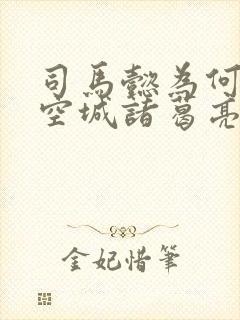 司马懿为何
空城諸葛亮
金妃惜筆